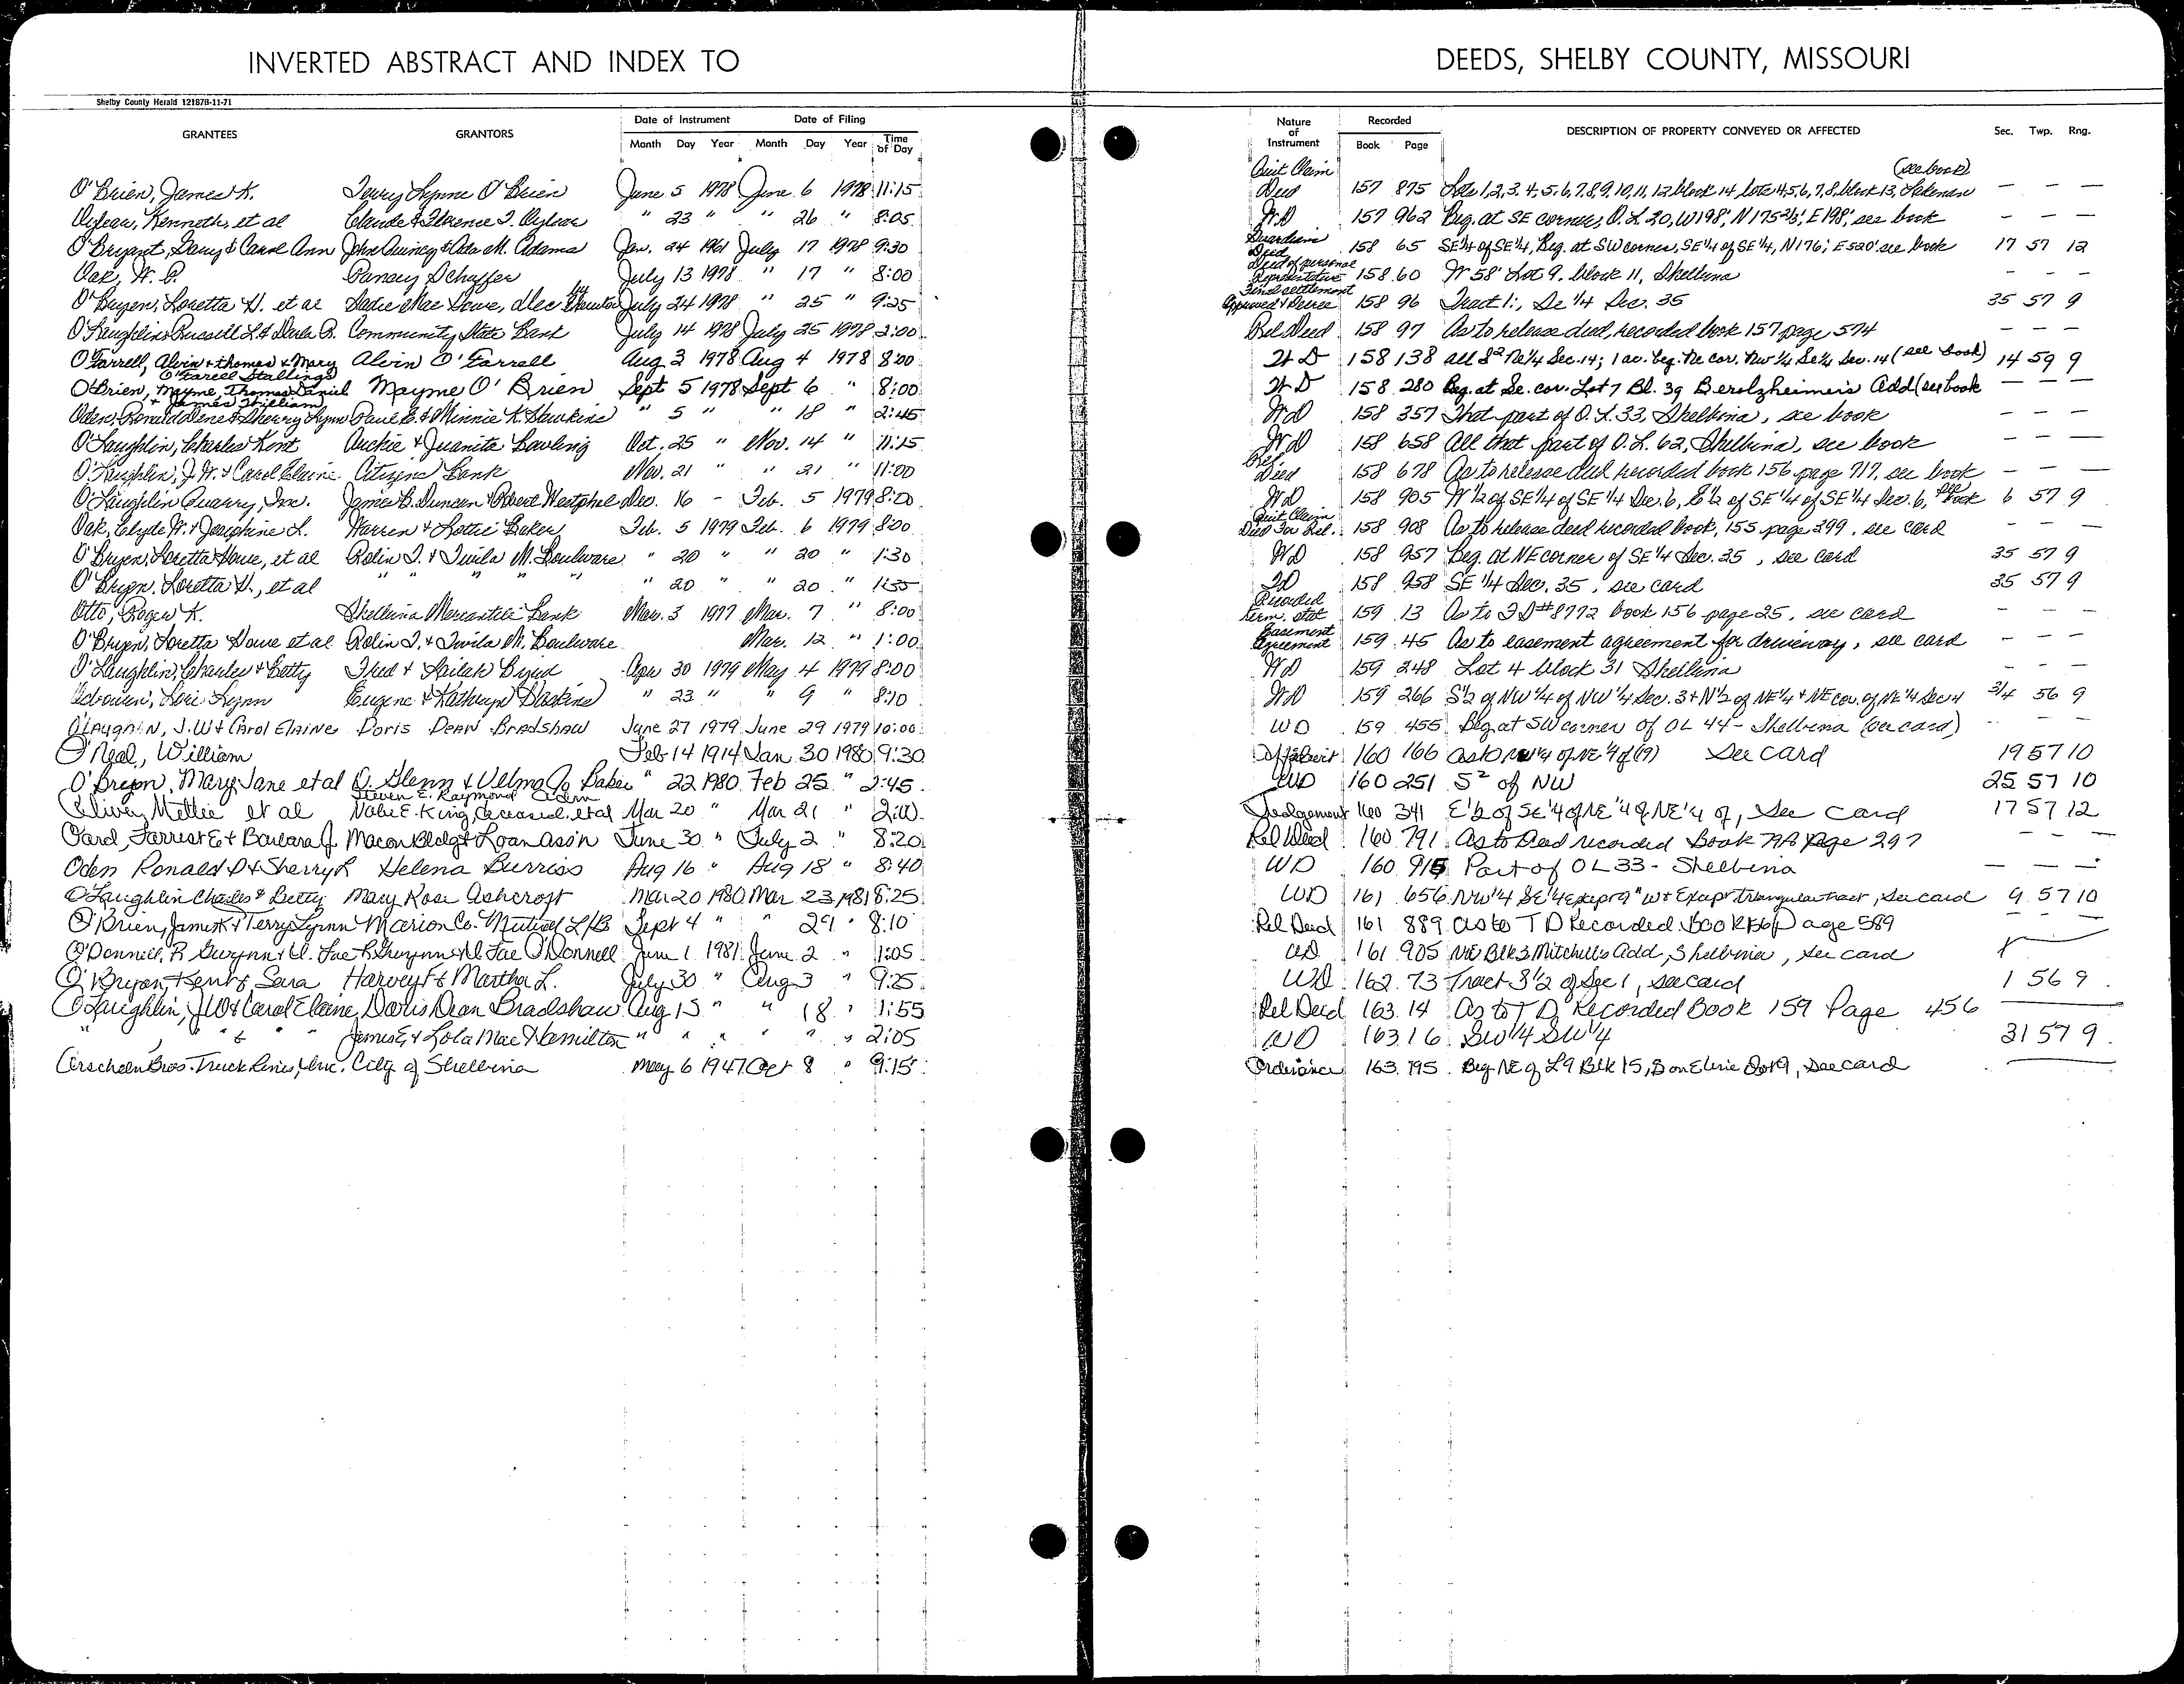 INVERTED ABSTRACT AND INDEX TO DEEDS, SHELBY COUNTY, MISSOURI
Shelby County Herald 12187B-11-71
GRANTEES GRANTORS Date of Instrument Date of Filing Nature of Instrument Recorded DESCRIPTION OF PROPERTY CONVEYED OR AFFECTED Sec. Twp. Rng.
Month Day Year Month Day Year Time of Day Book Page
O'Brien, James K. Terry Lynne O'Brien June 5 1978 June 6 1978 11:15 Quit Claim Deed 157 875 Lots 1,2,3,4,5,6,7,8,9,10,11,12 block 14, lots 4,5,6,7,8, block 13, Lakenan (see book) — — —
Kenneth, et al Claude & Florence I. " 23 " " 26 " 8:05 WD 157 962 Beg. at SE corner, O.L. 30, W198', N175 2/3', E198', see book — — —
O'Bryant, Gary & Carol Ann John Quincy & Ada M. Adams Jan. 24 1961 July 17 1978 9:30 Guardian Deed 158 65 SE¼ of SE¼, Beg. at SW corner, SE¼ of SE¼, N176', E520' see book 17 57 12
Oak, W. P. Schaffer July 13 1978 " 17 " 8:00 Deed of personal Representative 158 60 W 58' Lot 9, block 11, Shelbina
O'Bryen, Loretta H. et al Sadie Mae Howe, Dec July 24 1978 " 25 " 9:25 Final settlement Approved & Decree 158 96 Tract 1:, SE ¼ Sec. 35 35 57 9
O'Laughlin, Russell L. & Darla R. Community State Bank July 14 1978 July 25 1978 2:00 Rel Deed 158 97 As to release deed, recorded book 157 page 574 — — —
O'Farrell, Alvin & Thomas & Mary O'Farrell Stallings Alvin O'Farrell Aug 3 1978 Aug 4 1978 8:00 WD 158 138 all S² NE¼ Sec. 14; 1 ac. beg. NE cor. NW¼ SE¼ Sec. 14 (see book) 14 59 9
O'Brien, Mayme, Thomas Daniel & James William Mayme O'Brien Sept 5 1978 Sept 6 " 8:00 WD 158 280 Beg. at SE. cor. Lot 7 Bl. 39 Berolzheimer's Add (see book — — —
Oden, Ronald Dene & Sherry Lynn Paul E. & Minnie K. Hawkins " 5 " " 18 " 2:45 WD 158 357 That part of O.L. 33, Shelbina, see book — — —
O'Laughlin, Charles Kent Archie & Juanita Bowling Oct. 25 " Nov. 14 " 11:15 WD 158 658 All that part of O.L. 62, Shelbina, see book — — —
O'Laughlin, J.W. & Carol Elaine Citizens Bank Nov. 21 " " 21 " 11:00 Rel Deed 158 678 As to release deed recorded book 156 page 717, see book — — —
O'Laughlin Quarry, Inc. James B. Duncan & Robert Westphal Dec. 16 - Feb. 5 1979 8:00 WD 158 905 W ½ of SE ¼ of SE ¼ Sec. 6, E ½ of SE ¼ of SE ¼ Sec. 6, see book 6 57 9
Oak, Clyde W. & Josephine L. Warren & Lottie Baker Feb. 5 1979 Feb. 6 1979 8:00 Quit Claim Deed For Rel. 158 908 As to release deed recorded book, 155 page 299, see card — — —
O'Bryen, Loretta Howe, et al Rolin I. & Twila M. Boulware " 20 " " 20 " 1:30 WD 158 957 Beg. at NE corner of SE ¼ Sec. 25, see card 35 57 9
O'Bryen, Loretta H., et al " " " " " " 20 " 20 " 1:35 TD 158 958 SE ¼ Sec. 35, see card 35 57 9
Otto, Roger K. Shelbina Mercantile Bank Mar. 3 1977 Mar. 7 " 8:00 Recorded Term. Stat 159 13 As to TD #8772 book 156 page 25, see card — — —
O'Bryen, Loretta Howe et al Rolin I. & Twila M. Boulware Mar. 12 " 1:00 Easement Agreement 159 45 As to easement agreement for driveway, see card — — —
O'Laughlin, Charles & Betty Fred & Byrd Apr 30 1979 May 4 1979 8:00 WD 159 248 Lot 4 block 31 Shelbina — — —
Lori Lynn Eugene & Kathryn Haskins " 23 " " 9 " 8:10 WD 159 266 S½ of NW ¼ of NW ¼ Sec. 3 & N½ of NE¼ & NE cor. of NE ¼ Sec 4 3/4 56 9
O'LAUGHLIN, J.W & CAROL ELAINE DORIS DEAN BRADSHAW June 27 1979 June 29 1979 10:00 WD 159 455 Beg at SW corner of OL 44 - Shelbina (see card) — — —
O'Neal, William Feb 14 1914 Jan. 30 1980 9:30 Affidavit 160 166 as to NW¼ of NE ¼ of (19) See Card 19 57 10
O'Bryon, Mary Jane et al D. Glenn & Velma Jo Baker " 22 1980 Feb 25 " 2:45 WD 160 251 S² of NW 25 57 10
Oliver, Mettie et al Steven E. Raymond Adm Nobie E. King, Deceased, et al Mar 20 " Mar 21 " 2:00 Judgement 160 341 E½ of SE¼ of NE ¼ of NE¼ of, See Card 17 57 12
Oard, Forrest E & Barbara J. Macon Bldg & Loan Ass'n June 30 " July 2 " 8:20 Rel Deed 160 791 As to Deed recorded Book Page 297 — — —
Oden Ronald D & Sherry L Helena Burriss Aug 16 " Aug 18 " 8:40 WD 160 915 Part of OL 33 - Shelbina — — —
O'Laughlin Charles & Betty Mary Rose Ashcroft Mar 20 1980 Mar 23, 1981 8:25 WD 161 656 NW¼ SE¼ except 9" W & Except Triangular tract, see card 9 57 10
O'Brien, James K & Terry Lynn Marion Co. Mutual Sept 4 " " 29 " 8:10 Rel Deed 161 889 as to TD Recorded Book Page 589
O'Donnell, R Gwynn & U. Fae R Gwynn & U Fae O'Donnell June 1 1981 June 2 " 1:05 WD 161 905 Blk 3 Mitchell's Add, Shelbina, see card
O'Bryan, Kent & Sara Harvey F & Martha L. July 30 " Aug 3 " 9:25 WD 162 73 Tract S ½ of Sec 1, see card 1 56 9
O'Laughlin, JW & Carol Elaine Doris Dean Bradshaw Aug 13 " " 18 " 1:55 Rel Deed 163 14 As to T D Recorded Book 159 Page 456
" " & " James E & Lola Mae Hamilton " " " " " 2:05 WD 163 16 SW¼ SW¼ 31 57 9
Orscheln Bros. Truck Lines, Inc. City of Shelbina May 6 1947 Oct 8 " 9:15 Ordinance 163 795 Beg NE of L9 Blk 15, S on E line , see card